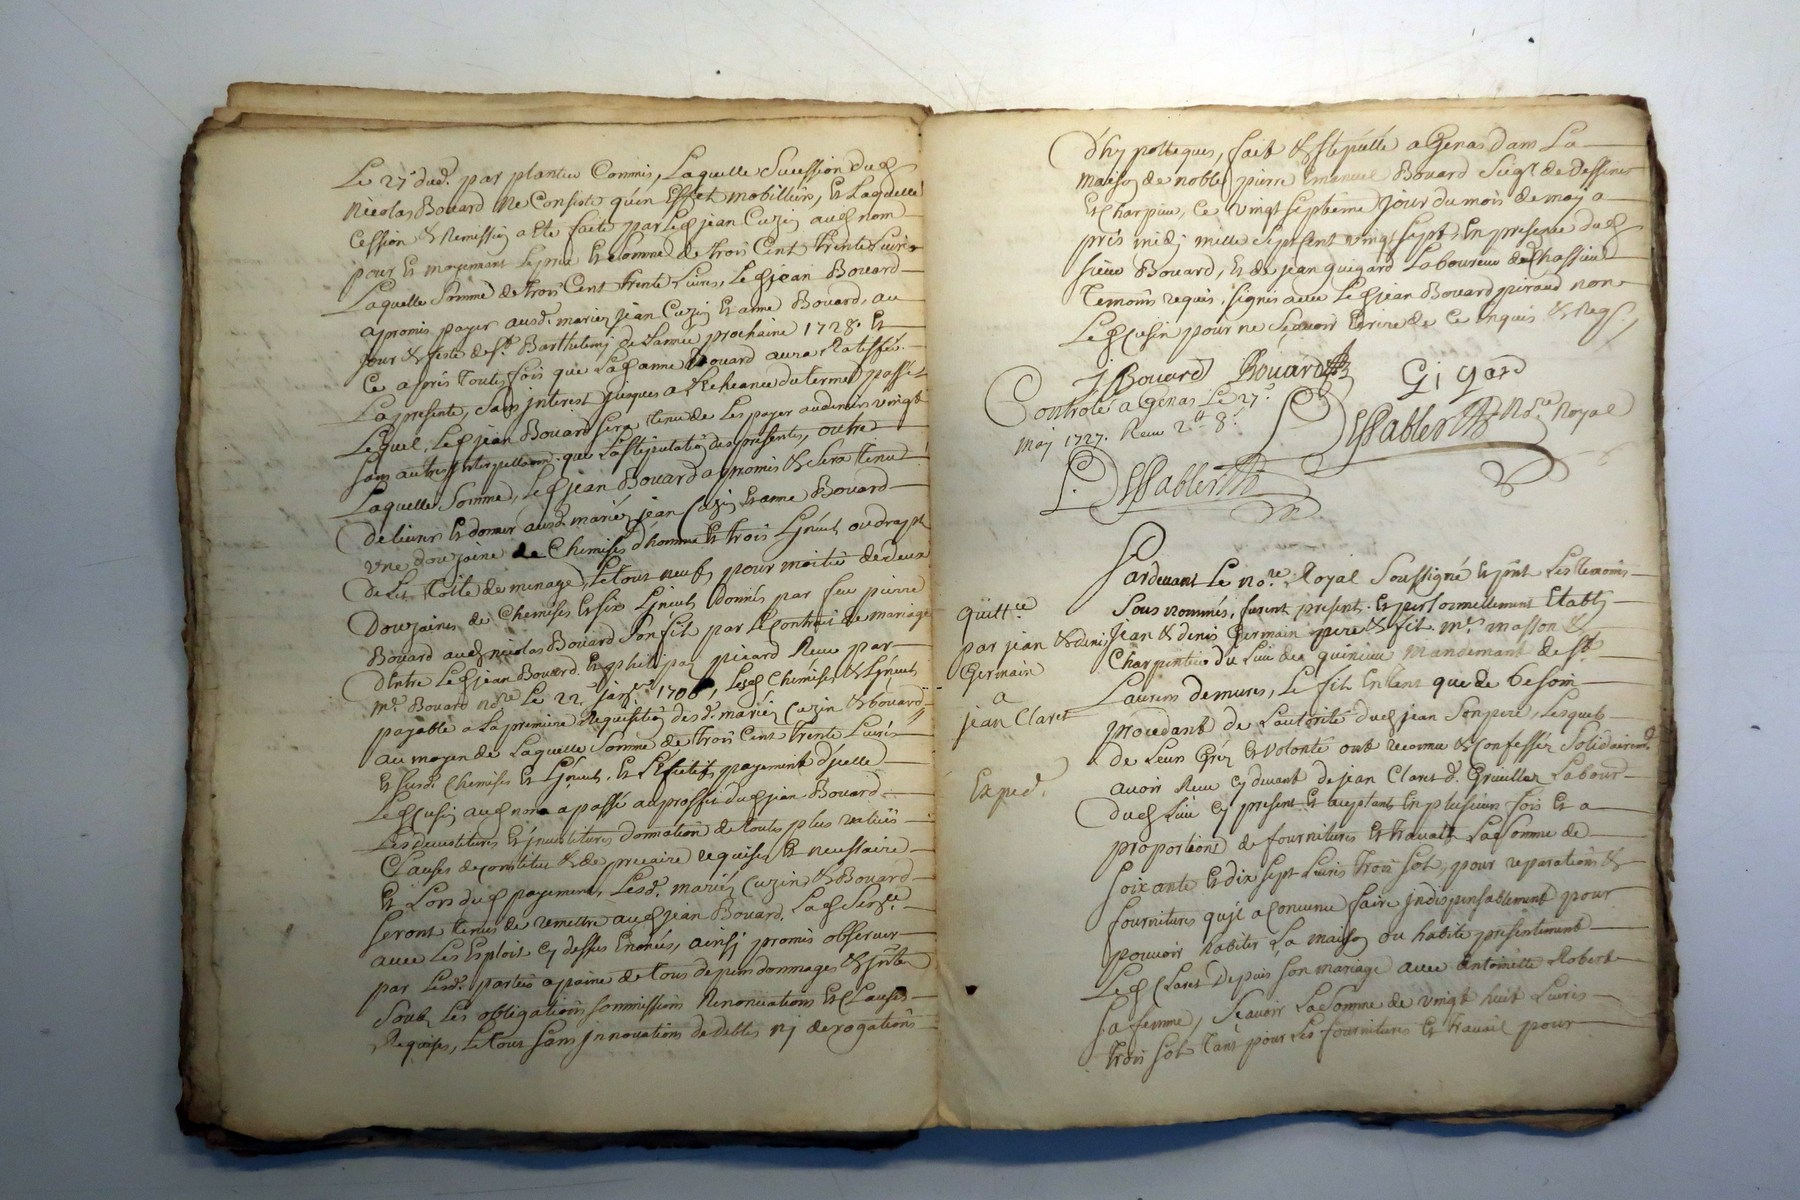 Le 27e dud. par plantier Commis, Laquelle Succession dud
Nicolas Bouard Ne Consiste qu'en Effet mobilliers, Et Laquelle
Cession & Remission a Eté faite par Led jean Cuzin aud nom
pour Et moyennant Le prix Et Somme de trois Cent trente Livres
Laquelle Somme de trois Cent trente Livres, Led jean Bouard
a promis payer ausd. mariez jean Cuzin Et anne Bouard, au
jour & feste de St. Barthelemj de L'année prochaine 1728. Et
Ce aprés Toutes fois que Lad anne Bouard aura Ratiffié
La presente, Sans jnterest jusques a L'Echeance du terme, passé
Lequel, Led jean Bouard sera tenu de Les payer au denier vingt
sans autre jnterpellaon. que La Stipulation des presentes, outre
Laquelle Somme, Led jean Bouard a promis & sera tenu
de livrer Et donner ausd. mariéz jean Cuzin Et anne Bouard
une douzaine de Chemises d'homme Et trois Linceuls ou drapt
de Lit Toile de menage, Le tout neuf, pour moitié de deux
Douzaines de Chemises Et six Linceuls donnés par feu pierre
Bouard aud nicolas Bouard Son fils par Le Contrat de mariage
d'Entre Led jean Bouard Et philipaz picard Receu par
me. Bouard nore Le 22e janr. 1706, Lesd Chemises & Linceuls
payable a La premiere Requisition desd. mariéz Cuzin & bouard
au moyen de Laquelle Somme de trois Cent trente Livres
Et susd. Chemises Et Linceuls, Et L'Efectif payement d'jcelle
Led Cusin aud nom a passé au proffit dud jean Bouard
Les devestitures Et jnvestitures donnation de toutes plus values
Clauses de constitut & de precaire requises Et necessaire
Et Lors dud payement, Lesd. mariéz Cuzin & Bouard
seront tenus de remettre aud jean Bouard, Lad
avec Les Exploits cy dessus Enoncés, ainsj promis observer
par Lesd. parties a peine de tous depens dommages & jnterets
Soub Les obligations soumissions Renonciations Et Clauses
Requises, Le tout sans jnnovations de debtes nj derogations
d'hypotteques, fait & stipullé a Genas dans La
maison de noble pierre Emanuel Bouard Seigr. de Dessines
Et Charpieu, Ce vingt septieme jour du mois de may a
prés midj mille sept cent vingt sept En presence dud
sieur Bouard, Et de jean guigard Laboureur de Chassieu
Temoins requis, Signés avec Led jean Bouard piraud non
Led Cusin pour ne Scavoir Ecrire de Ce Enquis & Reqs.
J Bouard Bouard Gigard
Controlé a Genas Le 27e.
may 1727. Receu 2tt 8s.
Nore Royal
Pardevant Le nore. Royal Soussigné Et pnt Les temoins
Sous nommés, furent presents Et personnellement Etablj
Jean & denis Germain pere & fils me. masson &
Charpentier du Lieu des quincieu mandement de St.
Laurens demures, Le fils En tant que de besoin
procedant de L'autorité dud jean Son pere, Lesquels
de Leur Gréz Et volonté ont reconnu & Confessés Solidairemt.
avoir Receu cy devant de jean Claret d. Gruiller Labour
dud Lieu cy present Et aceptant En plusieurs fois Et a
proportions de fournitures Et travail La Somme de
Soixante Et dix sept Livres trois sols, pour reparations &
fournitures qu'jl a Convenu faire jndispensablement pour
pouvoir habiter La maison ou habite presentement
Led Claret depuis Son mariage avec Antoinette Robert
sa femme, Scavoir La Somme de vingt huit Livres
trois sols tant pour Les fournitures Et travail pour
Quittce
par jean & denis
Germain
a
jean Claret
Exped.